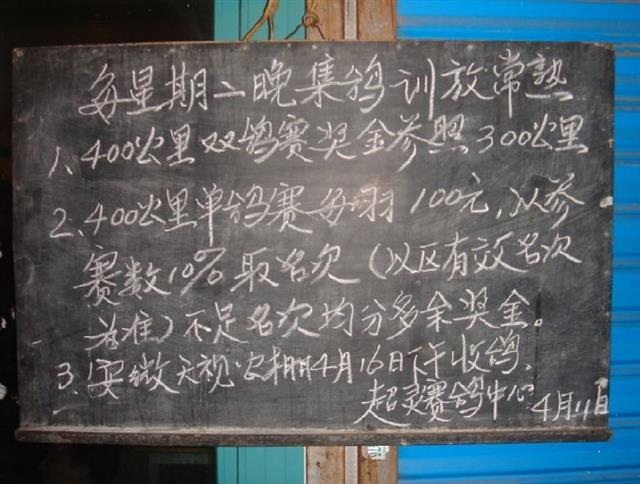 每星期二晚集鸽训放常熟
1、400公里双鸽赛奖金参照300公里
2、400公里单鸽赛每羽100元,以参
赛数10%取名次(以区有效名次
为准)不足名次均分多余奖金。
3、安微天视·定相4月16日下午收鸽.
超灵赛鸽中心
4月11日